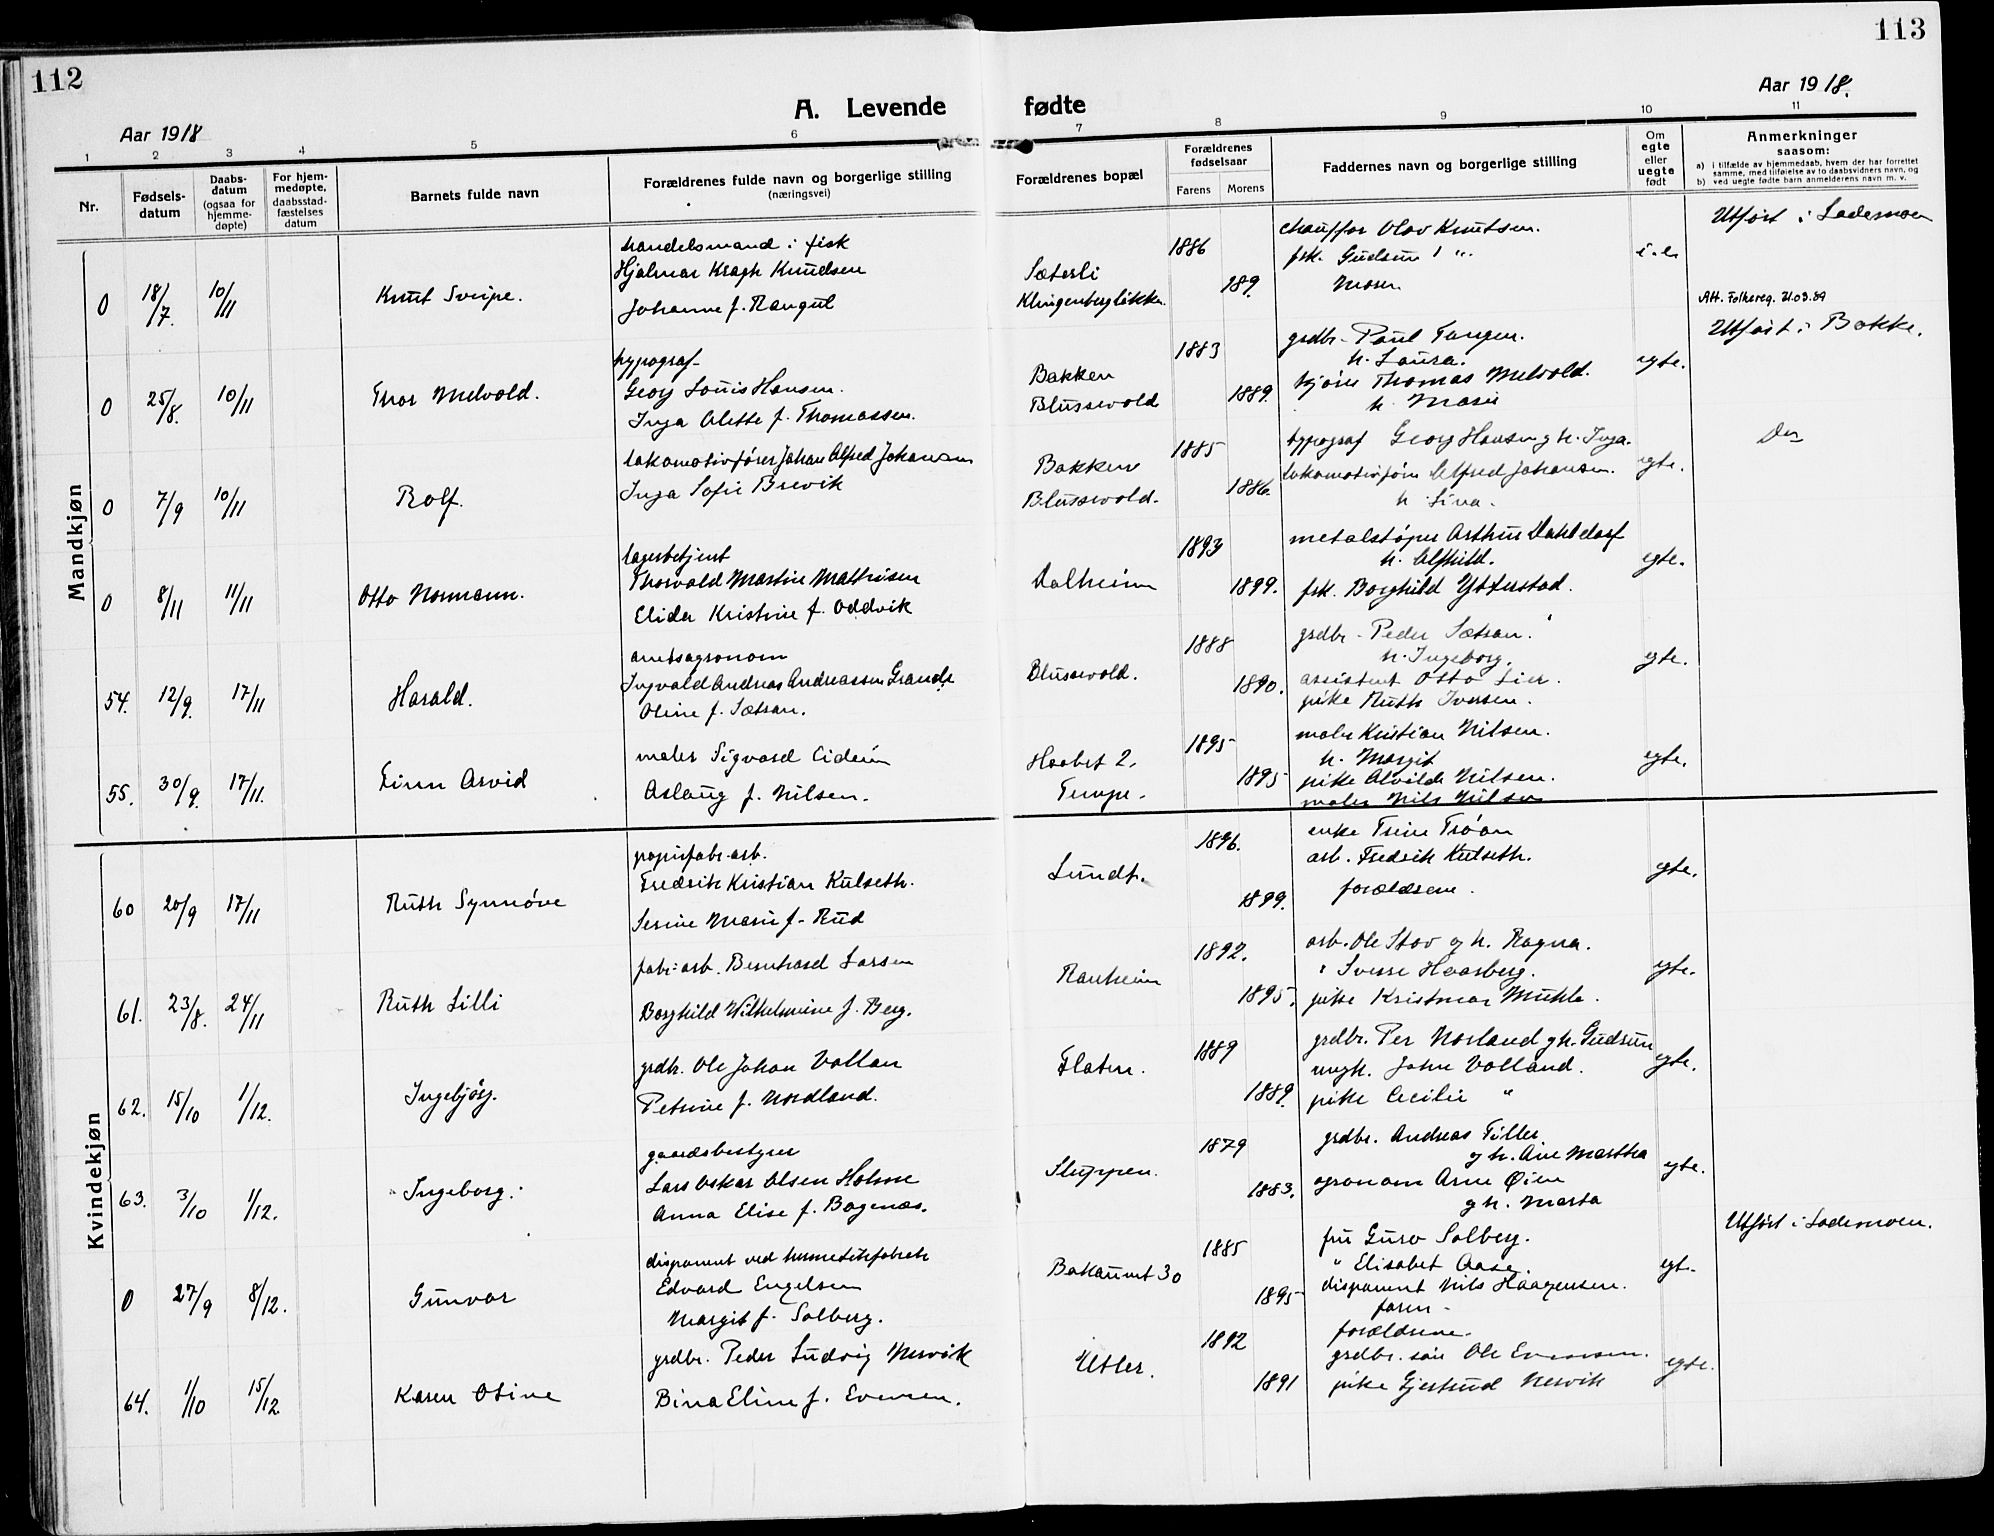 112
113
Aar 1918
A. Levende fødte
Aar 1918.
1 2 3 4 5 6 7 8 9 10 11
Nr.
Fødsels-
datum
Daabs-
datum
(ogsaa for
hjemme-
døpte)
For hjem-
medøpte,
daabsstad-
fæstelses
datum
Barnets fulde navn
Forældrenes fulde navn og borgerlige stilling
(næringsvei)
Forældrenes bopæl
Forældrenes
fødselsaar
Farens Morens
Faddernes navn og borgerlige stilling
Om
egte
eller
uegte
født
Anmerkninger
saasom:
a) i tilfælde av hjemmedaab, hvem der har forrettet
samme, med tilføielse av to daabsvidners navn, og
b) ved uegte fødte barn anmelderens navn m. v.
Mandkjøn
0 18/7. 10/11 Knut Sverpe.
handelsmand i fisk
Hjalmar Kragh Knudsen
Johanne f. Rangul
Sæterli
Klingenbergløkken
1886
189.
chauffør Olav Knutsen.
frk. Gudrun 1 "
Moren
Utført i Lademoen
Att. Folkereg. 21.03.89
0 25/8. 10/11 Thor Melvold.
typograf
Georg Louis Hansen.
Inga Alette f. Thomassen.
Bakken
Blussevold
1883
1889.
grdbr. Paul Tangen.
h. Laura.
kjører Thomas Melvold.
h. Marie
egte.
Utført i Bakke.
0 7/9 10/11 Rolf.
lokomotivfører Johan Alfred Johansen
Inga Sofie Brevik
Bakken
Blussevold.
1885
1886.
typograf Georg Hansen g h. Inga.
lokomotivfører Alfred Johansen.
h. Lina.
egte.
Do
0 8/11 11/11 Otto Normann.
lagerbetjent
Thorvald Martin Mathisen
Elida Kristine f. Oddvik
Dalheim
1893
1899.
metalstøper Arthur Dahldorf
h. Alfhild.
frk. Borghild Ytterstad.
egte.
54. 12/9. 17/11 Harald.
amtsagronom
Ingvald Andreas Andreassen Grande
Oline f. Sætran.
Blussevold.
1888
1890.
grdbr. Peder Sætran.
h. Ingeborg.
assistent Otto Lier.
pike Ruth Iversen.
egte.
55. 30/9. 17/11. Finn Arvid
maler Sigvard Eidem
Aslaug f. Nilsen.
Haabet 2,
Tempe.
1895
1895
maler Kristian Nilsen.
h. Margit
pike Alvilde Nilsen.
maler Nils Nilsen
egte.
Kvindekjøn
60 20/9 17/11 Ruth Synnøve
papirfabr. arb.
Fredrik Kristian Kulseth.
Serine Marie f. Rud
Lundt.
1896.
1899.
enke Trine Trøan
arb. Fredrik Kulseth.
forældrene.
egte.
61. 23/8. 24/11 Ruth Lilli
fabr. arb. Bernhard Larsen
Borghild Wilhelmine f. Berg.
Ranheim
1892.
1895.
arb. Ole Stav g h. Ragna.
" Sverre Haarberg.
pike Kristmar Muhle.
egte.
62. 15/10 1/12. Ingebjørg.
grdbr. Ole Johan Vollan
Petrine f. Nordland.
Flaten.
1889
1889.
grdbr. Per Norland g h. Gudrun
ungk. John Volland.
pike Cecilie "
egte.
63. 3/10 1/12. Ingeborg.
gaardsbestyrer
Lars Oskar Olsen Holme
Anna Elise f. Bagenæs.
Sluppen.
1879
1883.
grdbr. Andreas Tiller
g h. Ane Martha
agronom Arne Øien
g h. Marta
egte.
0 27/9 8/12. Gunvor
disponent ved hermetikfabrik
Edvard Engelsen
Margit f. Solberg.
Bakaunet 30
1885
1895
fru Guro Solberg.
" Elisabet Aase.
disponent Nils Haagensen.
faren
egt.
Utført i Lademoen.
64. 1/10 15/12 Karen Otine
grdbr. Peder Ludvig Nervik
Bina Eline f. Evensen.
Utler.
1892
1891
forældrene.
grdbr. søn Ole Evensen.
pike Gjertrud Nervik
egte.